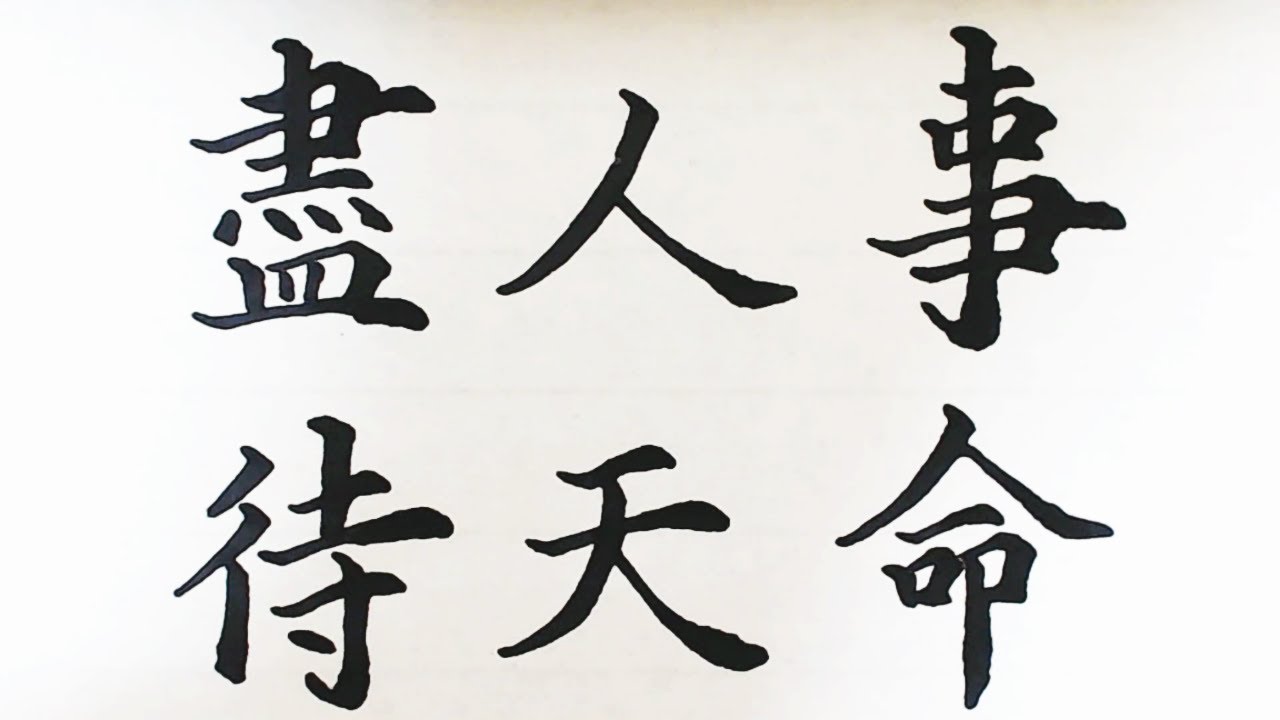 盡人事
待天命